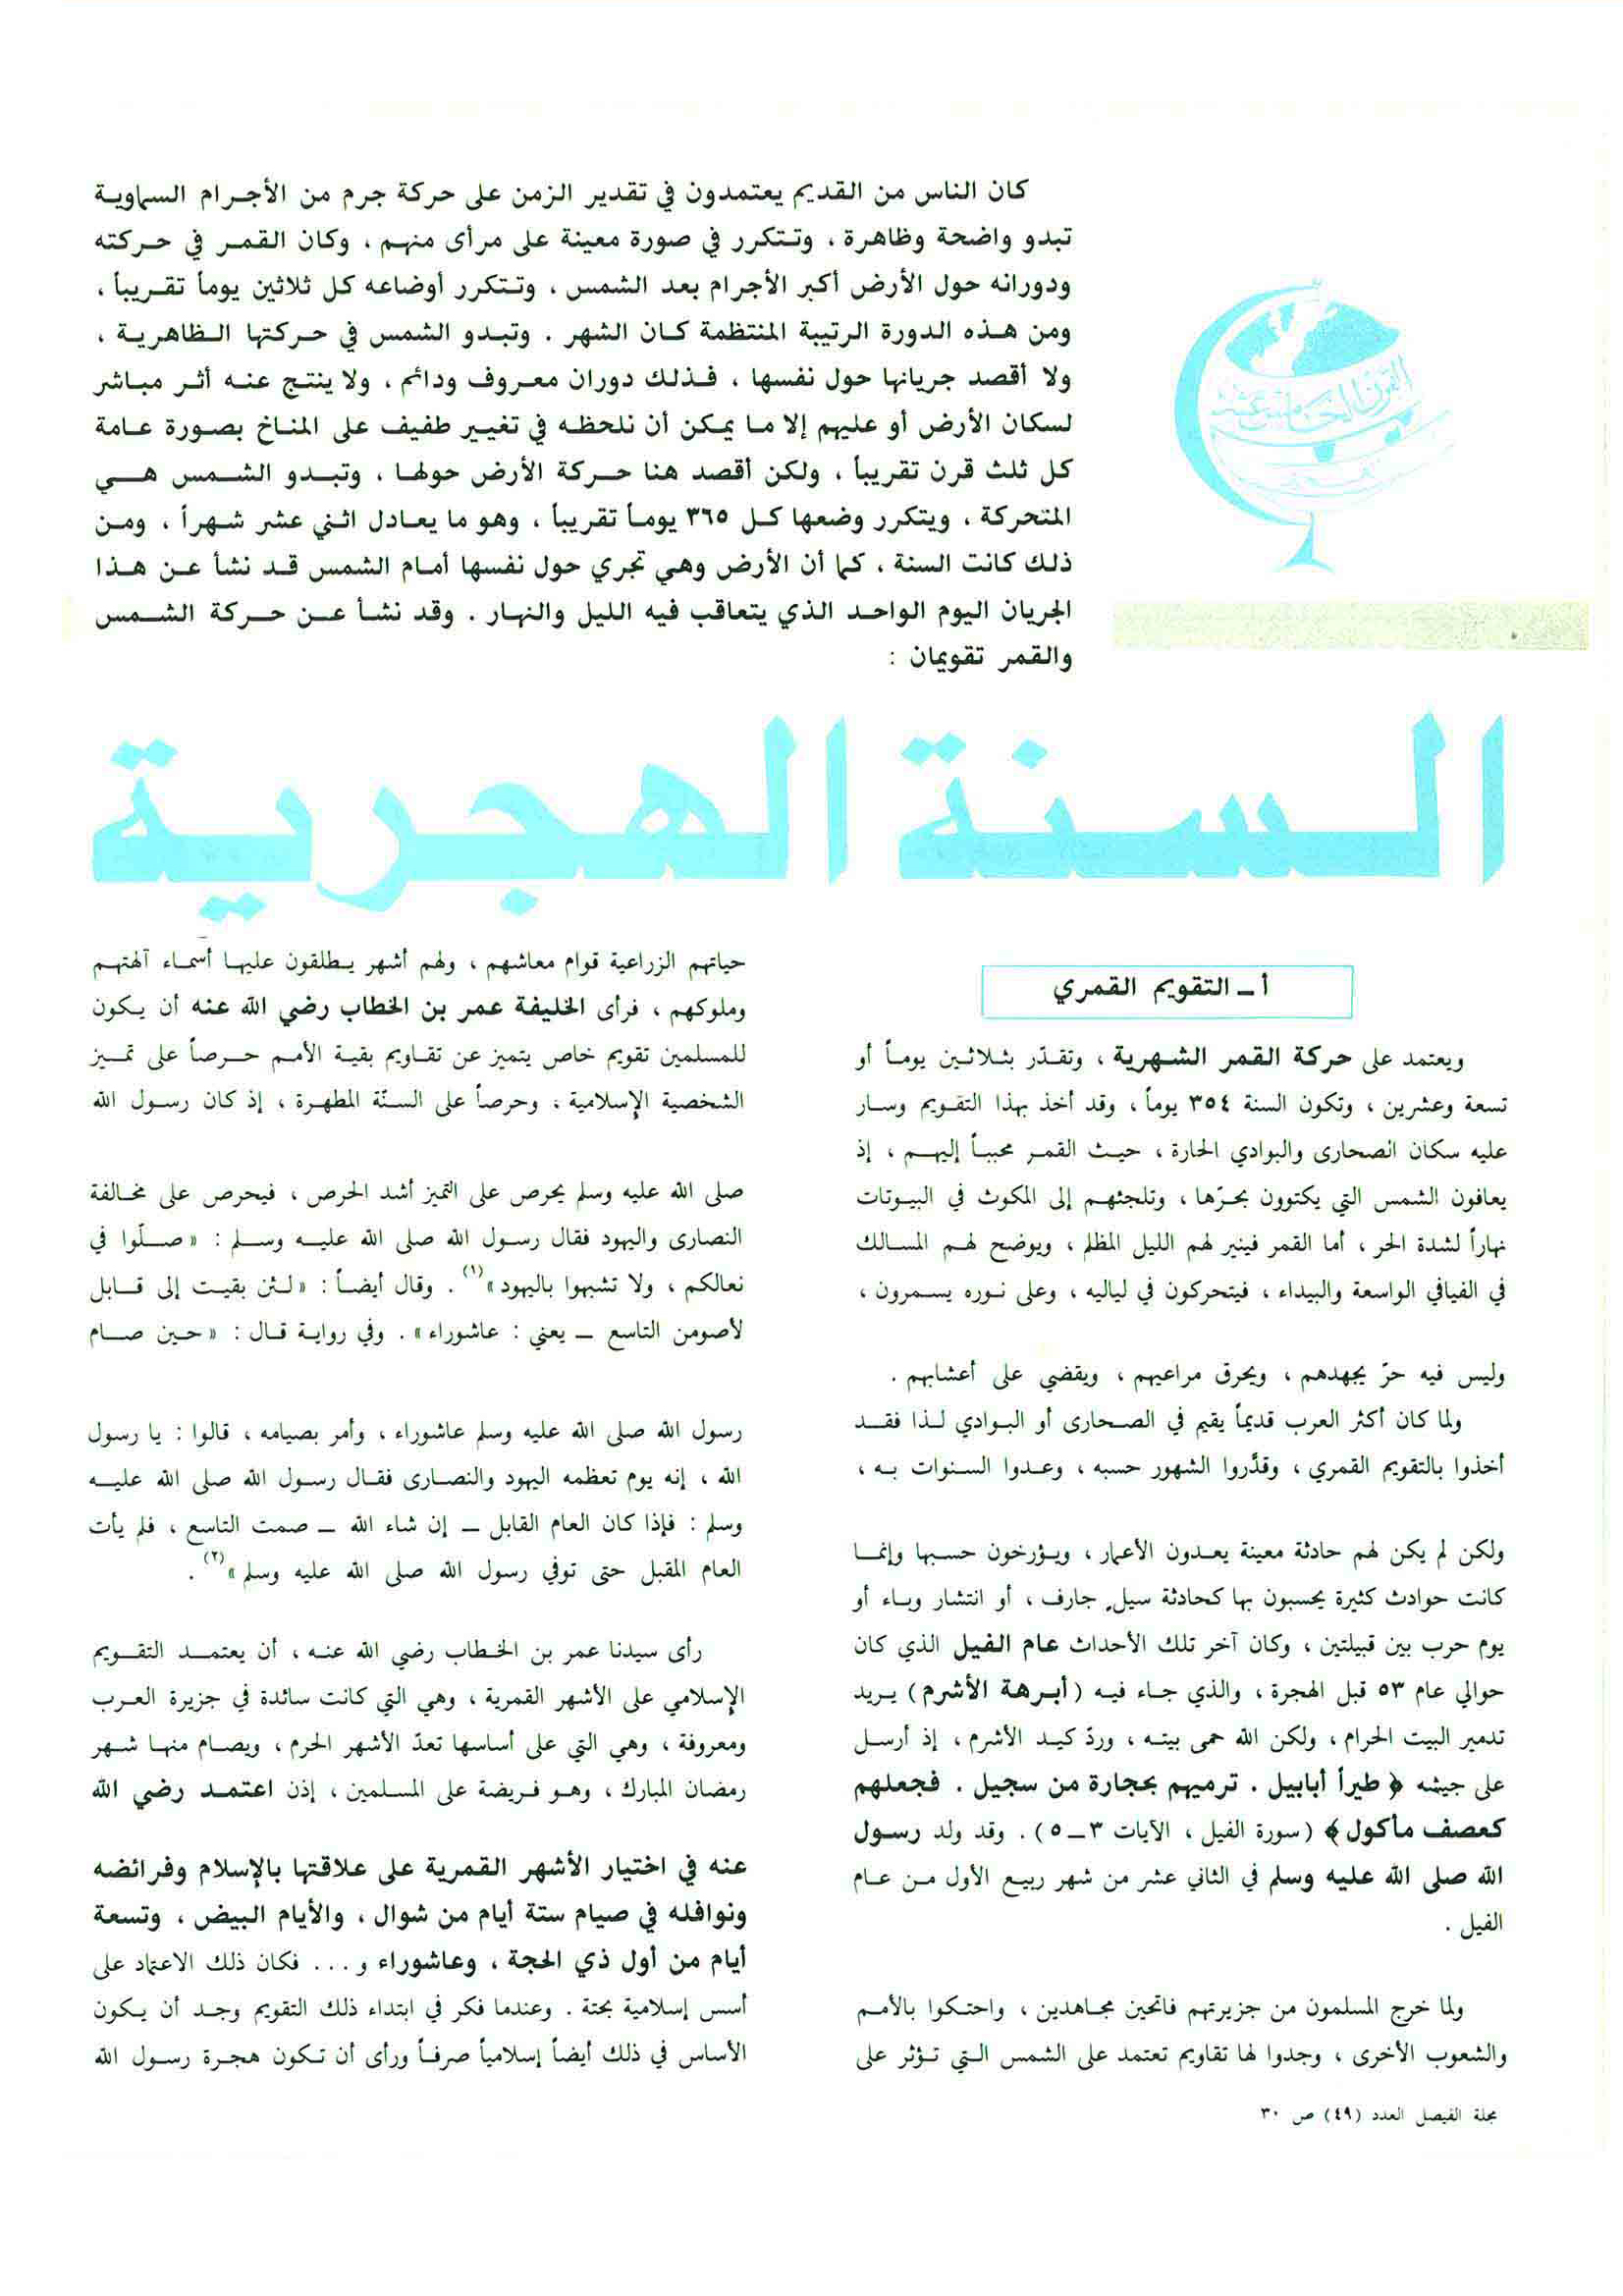 كان الناس من القديم يعتمدون في تقدير الزمن على حركة جرم من الأجرام السماوية
تبدو واضحة وظاهرة ، وتتكرر في صورة معينة على مرأى منهم ، وكان القمر في حركته
ودورانه حول الأرض أكبر الأجرام بعد الشمس ، وتتكرر أوضاعه كل ثلاثين يوماً تقريباً ،
ومن هذه الدورة الرتيبة المنتظمة كان الشهر . وتبدو الشمس في حركتها الظاهرية ،
ولا أقصد جريانها حول نفسها ، فذلك دوران معروف ودائم ، ولا ينتج عنه أثر مباشر
لسكان الأرض أو عليهم إلا ما يمكن أن نلحظه في تغيير طفيف على المناخ بصورة عامة
كل ثلث قرن تقريباً ، ولكن أقصد هنا حركة الأرض حولها ، وتبدو الشمس هي
المتحركة ، ويتكرر وضعها كل ٣٦٥ يوماً تقريباً ، وهو ما يعادل اثني عشر شهراً ، ومن
ذلك كانت السنة ، كما أن الأرض وهي تجري حول نفسها أمام الشمس قد نشأ عن هذا
الجريان اليوم الواحد الذي يتعاقب فيه الليل والنهار . وقد نشأ عن حركة الشمس
والقمر تقويمان :
القرن الخامس عشر
السنة الهجرية
أ ــ التقويم القمري
ويعتمد على حركة القمر الشهرية ، وتقدّر بثلاثين يوماً أو
تسعة وعشرين ، وتكون السنة ٣٥٤ يوماً ، وقد أخذ بهذا التقويم وسار
عليه سكان الصحارى والبوادي الحارة ، حيث القمر محبباً إليهم ، إذ
يعافون الشمس التي يكتوون بحرّها ، وتلجئهم إلى المكوث في البيوتات
نهاراً لشدة الحر ، أما القمر فينير لهم الليل المظلم ، ويوضح لهم المسالك
في الفيافي الواسعة والبيداء ، فيتحركون في لياليه ، وعلى نوره يسمرون ،
وليس فيه حرّ يجهدهم ، ويحرق مراعيهم ، ويقضي على أعشابهم .
ولما كان أكثر العرب قديماً يقيم في الصحارى أو البوادي لذا فقد
أخذوا بالتقويم القمري ، وقدَّروا الشهور حسبه ، وعدوا السنوات به ،
ولكن لم يكن لهم حادثة معينة يعدون الأعمار ، ويؤرخون حسبها وإنما
كانت حوادث كثيرة يحسبون بها كحادثة سيل جارف ، أو انتشار وباء أو
يوم حرب بين قبيلتين ، وكان آخر تلك الأحداث عام الفيل الذي كان
حوالي عام ٥٣ قبل الهجرة ، والذي جاء فيه (أبرهة الأشرم) يريد
تدمير البيت الحرام ، ولكن الله حمى بيته ، وردّ كيد الأشرم ، إذ أرسل
على جيشه ﴿ طيراً أبابيل . ترميهم بحجارة من سجيل . فجعلهم
كعصف مأكول ﴾ (سورة الفيل ، الآيات ٣ــ٥) . وقد ولد رسول
الله صلى الله عليه وسلم في الثاني عشر من شهر ربيع الأول من عام
الفيل .
ولما خرج المسلمون من جزيرتهم فاتحين مجاهدين ، واحتكوا بالأمم
والشعوب الأخرى ، وجدوا لها تقاويم تعتمد على الشمس التي تؤثر على
حياتهم الزراعية قوام معاشهم ، ولهم أشهر يطلقون عليها أسماء آلهتهم
وملوكهم ، فرأى الخليفة عمر بن الخطاب رضي الله عنه أن يكون
للمسلمين تقويم خاص يتميز عن تقاويم بقية الأمم حرصاً على تميز
الشخصية الإسلامية ، وحرصاً على السنّة المطهرة ، إذ كان رسول الله
صلى الله عليه وسلم يحرص على التميز أشد الحرص ، فيحرص على مخالفة
النصارى واليهود فقال رسول الله صلى الله عليه وسلم : «صلّوا في
نعالكم ، ولا تشبهوا باليهود»(١) . وقال أيضاً : «لئن بقيت إلى قابل
لأصومن التاسع ــ يعني : عاشوراء» . وفي رواية قال : «حين صام
رسول الله صلى الله عليه وسلم عاشوراء ، وأمر بصيامه ، قالوا : يا رسول
الله ، إنه يوم تعظمه اليهود والنصارى فقال رسول الله صلى الله عليه
وسلم : فإذا كان العام القابل ــ إن شاء الله ــ صمت التاسع ، فلم يأت
العام المقبل حتى توفي رسول الله صلى الله عليه وسلم»(٢) .
رأى سيدنا عمر بن الخطاب رضي الله عنه ، أن يعتمد التقويم
الإسلامي على الأشهر القمرية ، وهي التي كانت سائدة في جزيرة العرب
ومعروفة ، وهي التي على أساسها تعدّ الأشهر الحرم ، ويصام منها شهر
رمضان المبارك ، وهو فريضة على المسلمين ، إذن اعتمد رضي الله
عنه في اختيار الأشهر القمرية على علاقتها بالإسلام وفرائضه
ونوافله في صيام ستة أيام من شوال ، والأيام البيض ، وتسعة
أيام من أول ذي الحجة ، وعاشوراء و... فكان ذلك الاعتماد على
أسس إسلامية بحتة . وعندما فكر في ابتداء ذلك التقويم وجد أن يكون
الأساس في ذلك أيضاً إسلامياً صرفاً ورأى أن تكون هجرة رسول الله
مجلة الفيصل العدد (٤٩) ص ٣٠